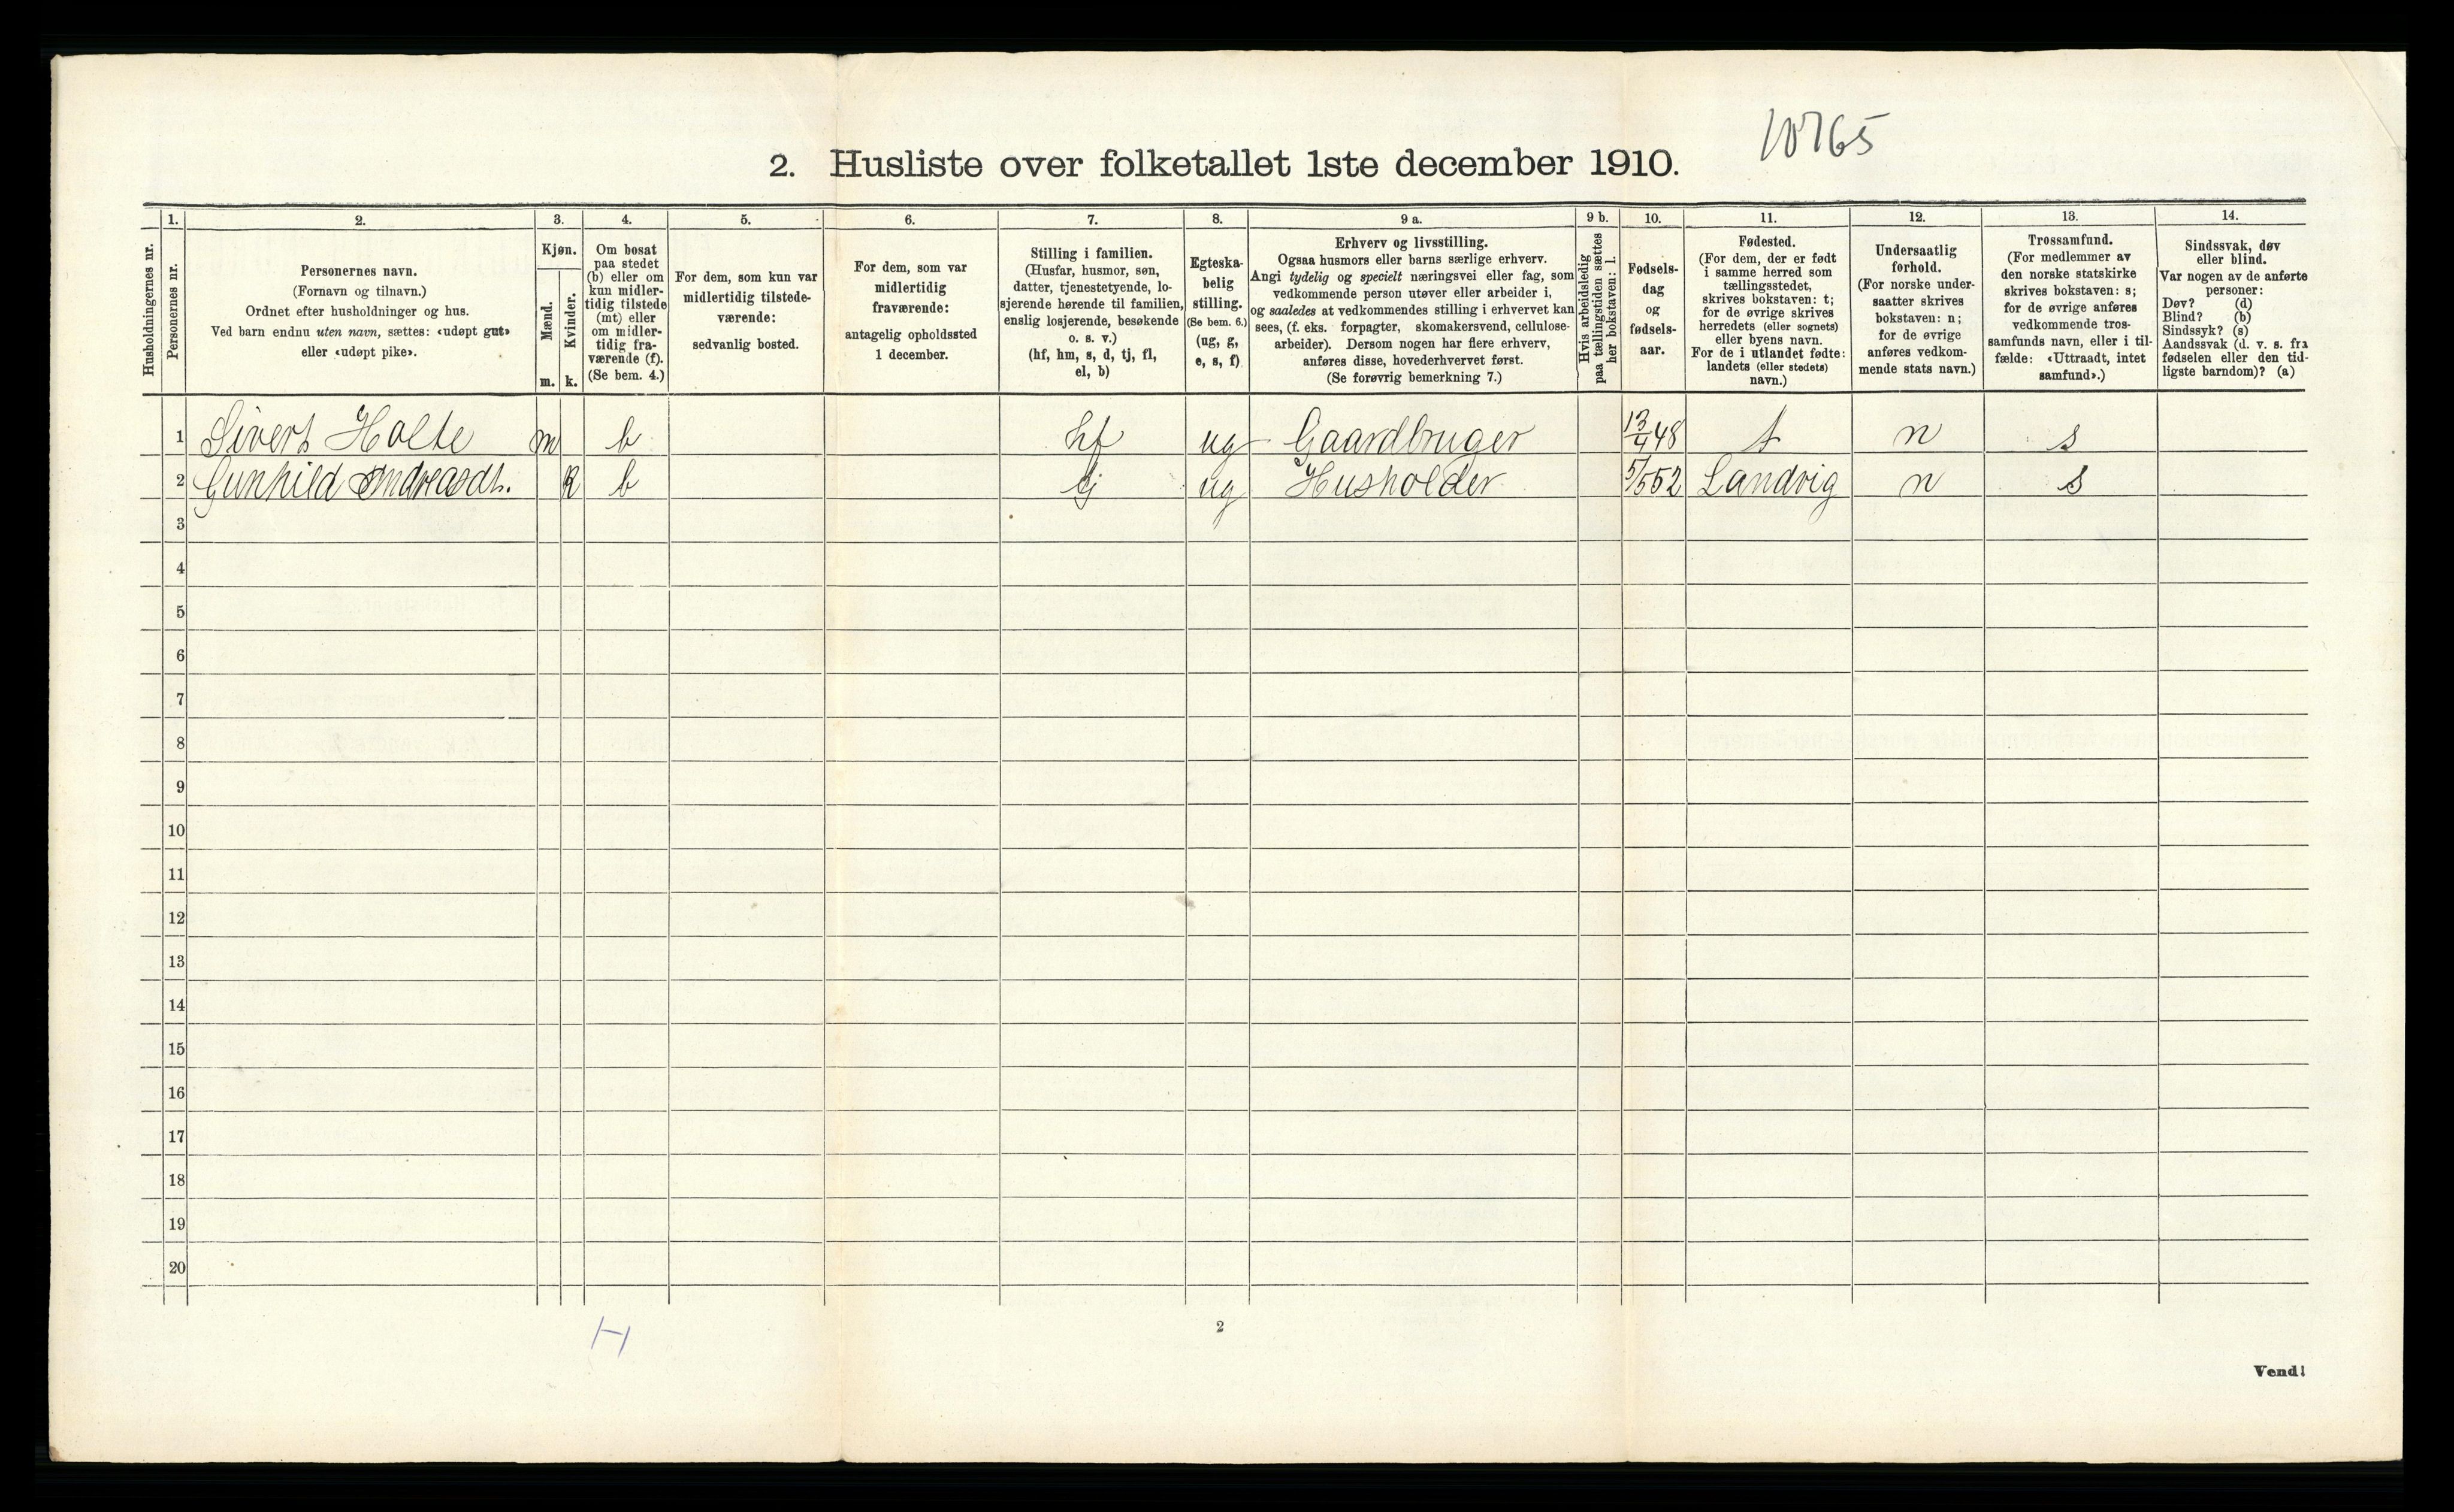 10765
2. Husliste over folketallet 1ste december 1910.
Husholdningernes nr.
1.
Personernes nr.
2.
Personernes navn.
(Fornavn og tilnavn.)
Ordnet efter husholdninger og hus.
Ved barn endnu uten navn, sættes: «udøpt gut»
eller «udøpt pike».
3.
Kjøn.
Mænd.
m.
Kvinder.
k.
4.
Om bosat
paa stedet
(b) eller om
kun midler-
tidig tilstede
(mt) eller
om midler-
tidig fra-
værende (f).
(Se bem. 4.)
5.
For dem, som kun var
midlertidig tilstede-
værende:
sedvanlig bosted.
6.
For dem, som var
midlertidig
fraværende:
antagelig opholdssted
1 december.
7.
Stilling i familien.
(Husfar, husmor, søn,
datter, tjenestetyende, lo-
sjerende hørende til familien,
enslig losjerende, besøkende
o. s. v.)
(hf, hm, s, d, tj, fl,
el, b)
8.
Egteska-
belig
stilling.
(Se bem. 6.)
(ug, g,
e, s, f)
9 a.
Erhverv og livsstilling.
Ogsaa husmors eller barns særlige erhverv.
Angi tydelig og specielt næringsvei eller fag, som
vedkommende person utøver eller arbeider i,
og saaledes at vedkommendes stilling i erhvervet kan
sees, (f. eks. forpagter, skomakersvend, cellulose-
arbeider). Dersom nogen har flere erhverv,
anføres disse, hovederhvervet først.
(Se forøvrig bemerkning 7.)
9 b.
Hvis arbeidsledig
paa tællingstiden sættes
her bokstaven: l.
10.
Fødsels-
dag
og
fødsels-
aar.
11.
Fødested.
(For dem, der er født
i samme herred som
tællingsstedet,
skrives bokstaven: t;
for de øvrige skrives
herredets (eller sognets)
eller byens navn.
For de i utlandet fødte:
landets (eller stedets)
navn.)
12.
Undersaatlig
forhold.
(For norske under-
saatter skrives
bokstaven: n;
for de øvrige
anføres vedkom-
mende stats navn.)
13.
Trossamfund.
(For medlemmer av
den norske statskirke
skrives bokstaven: s;
for de øvrige anføres
vedkommende tros-
samfunds navn, eller i til-
fælde: «Uttraadt, intet
samfund».)
14.
Sindssvak, døv
eller blind.
Var nogen av de anførte
personer:
Døv? (d)
Blind? (b)
Sindssyk? (s)
Aandssvak (d. v. s. fra
fødselen eller den tid-
ligste barndom)? (a)
1 Sivert Holte m b hf ug Gaardbruger 13/4 48 t n s
2 Gunhild Andreasdt. k b tj ug Husholder 5/5 52 Landvig n s
3
4
5
6
7
8
9
10
11
12
13
14
15
16
17
18
19
20
H
2
Vend!